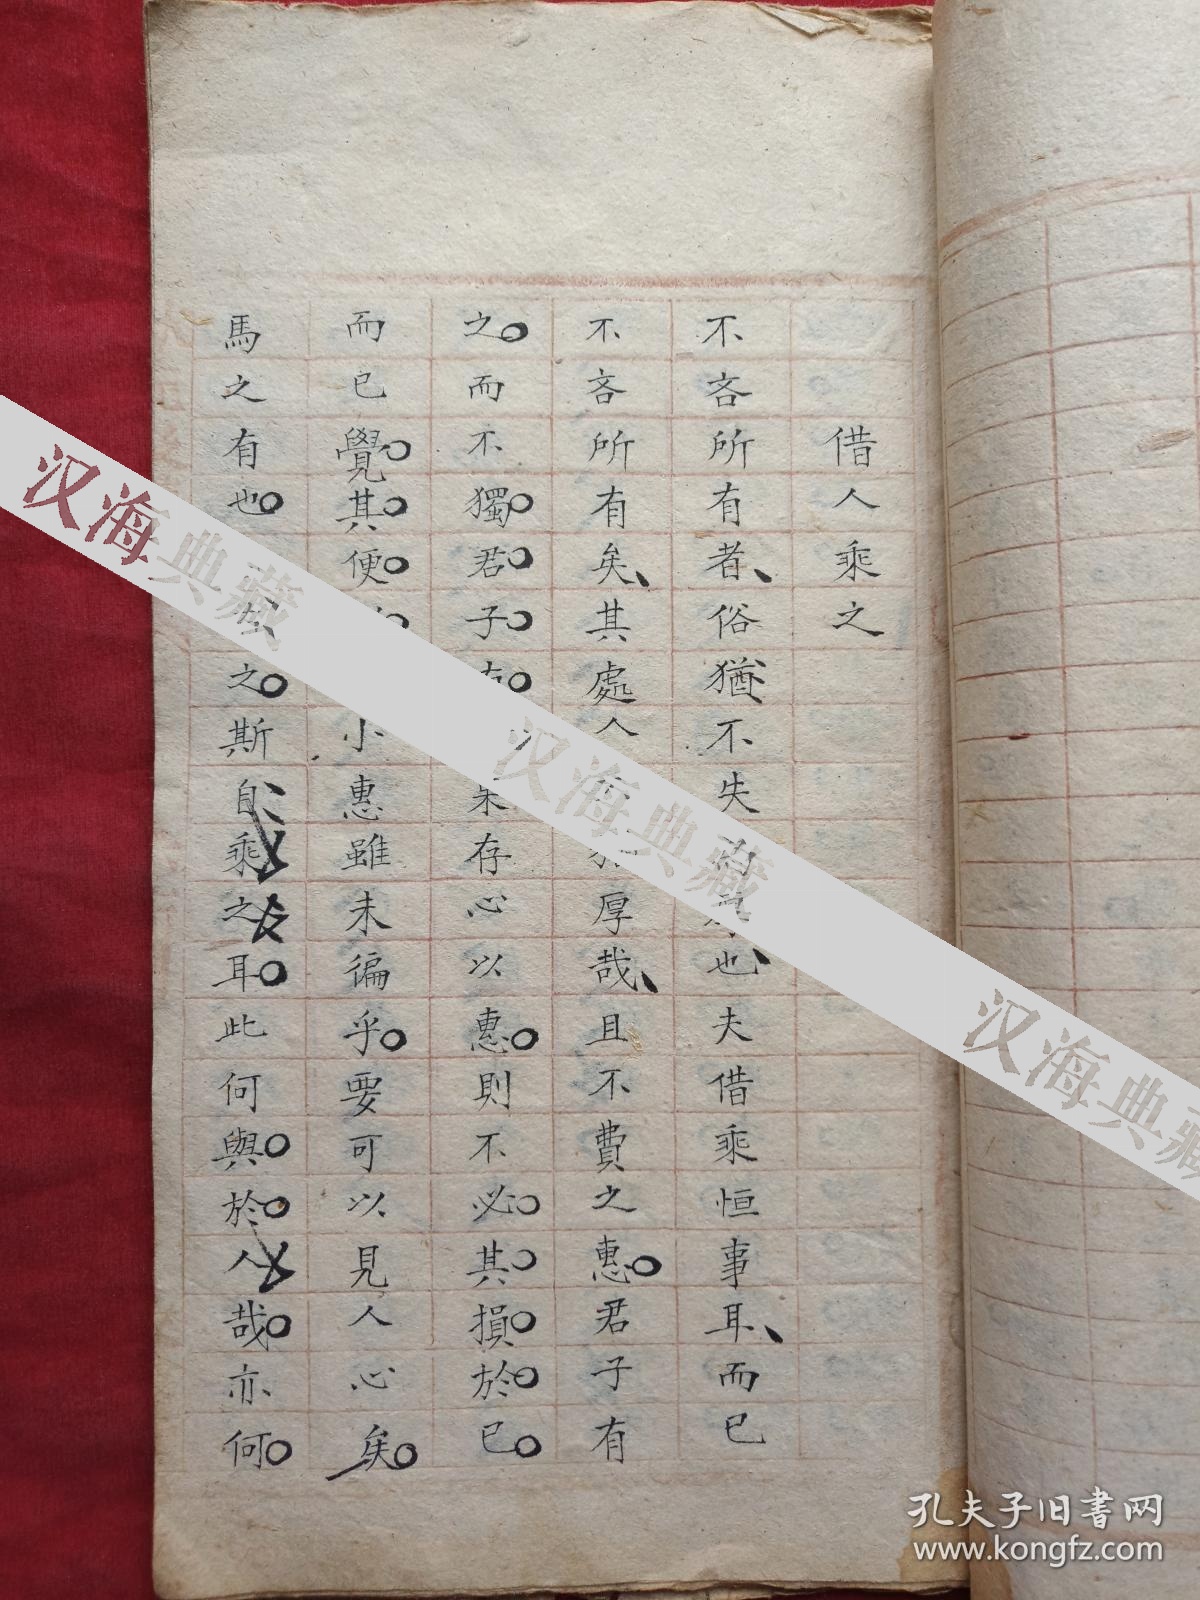 借人乘之
不吝所有者俗猶不失也夫借乘恒事耳而已
不吝所有矣其處人厚哉且不費之惠君子有
之而不獨君子有果存心以惠則不必其損於已
而已覺其便小惠雖未徧乎要可以見人心矣
馬之有也之斯自乘之耳此何與於人哉亦何
汉海典藏
汉海典藏
汉海典藏
孔夫子旧书网
www.kongfz.com